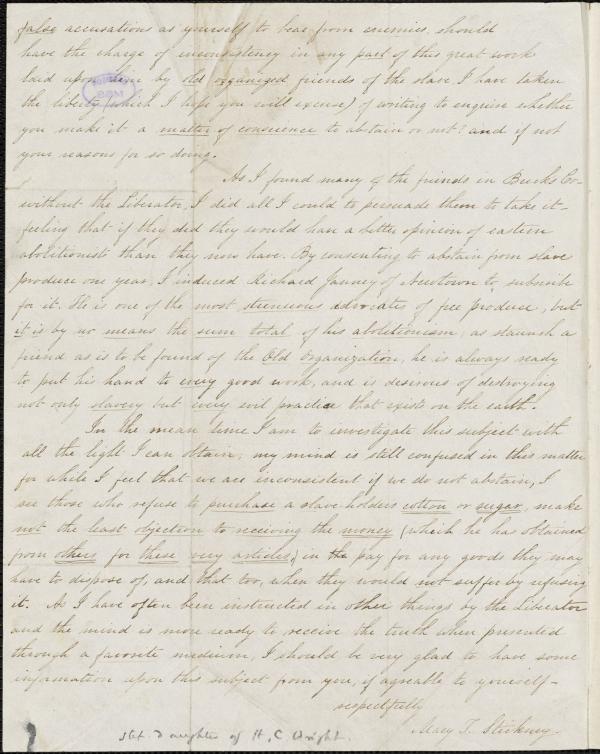 false accusations as yourself to bear from enemies, should
have the charge of inconsistency in any part of this great work
laid upon him by old organized friends of the slave I have taken
the liberty (which I hope you will excuse) of writing to enquire whether
you make it a matter of conscience to abstain or not? and if not
your reasons for so doing.
As I found many of the friends in Bucks Co-
without the Liberator, I did all I could to persuade them to take it-
feeling that if they did they would have a better opinion of eastern
abolitionists than they now have. By consenting to abstain from slave
produce one year, I induced Richard Janney of Newtown to subscribe
for it. He is one of the most strenuous advocates of free produce, but
it is by no means the sum total of his abolitionism, as staunch a
friend as is to be found of the Old Organization, he is always ready
to put his hand to every good work, and is desirous of destroying
not only slavery but every evil practice that exists on the earth.
In the mean time I am to investigate this subject with
all the light I can obtain; my mind is still confused in this matter
for while I feel that we are inconsistent if we do not abstain, I
see those who refuse to purchase a slave-holders cotton or sugar, make
not the least objection to receiving the money (which he has obtained
from others for these very articles,) in the pay for any goods they may
have to dispose of, and that too, when they would not suffer by refusing
it. As I have often been instructed in other things by the Liberator
and the mind is more ready to receive the truth when presented
through a favorite medium, I should be very glad to have some
information upon this subject from you, if agreeable to yourself-
respectfully
Mary T. Stickney-
step. Daughter of H. C. Wright.